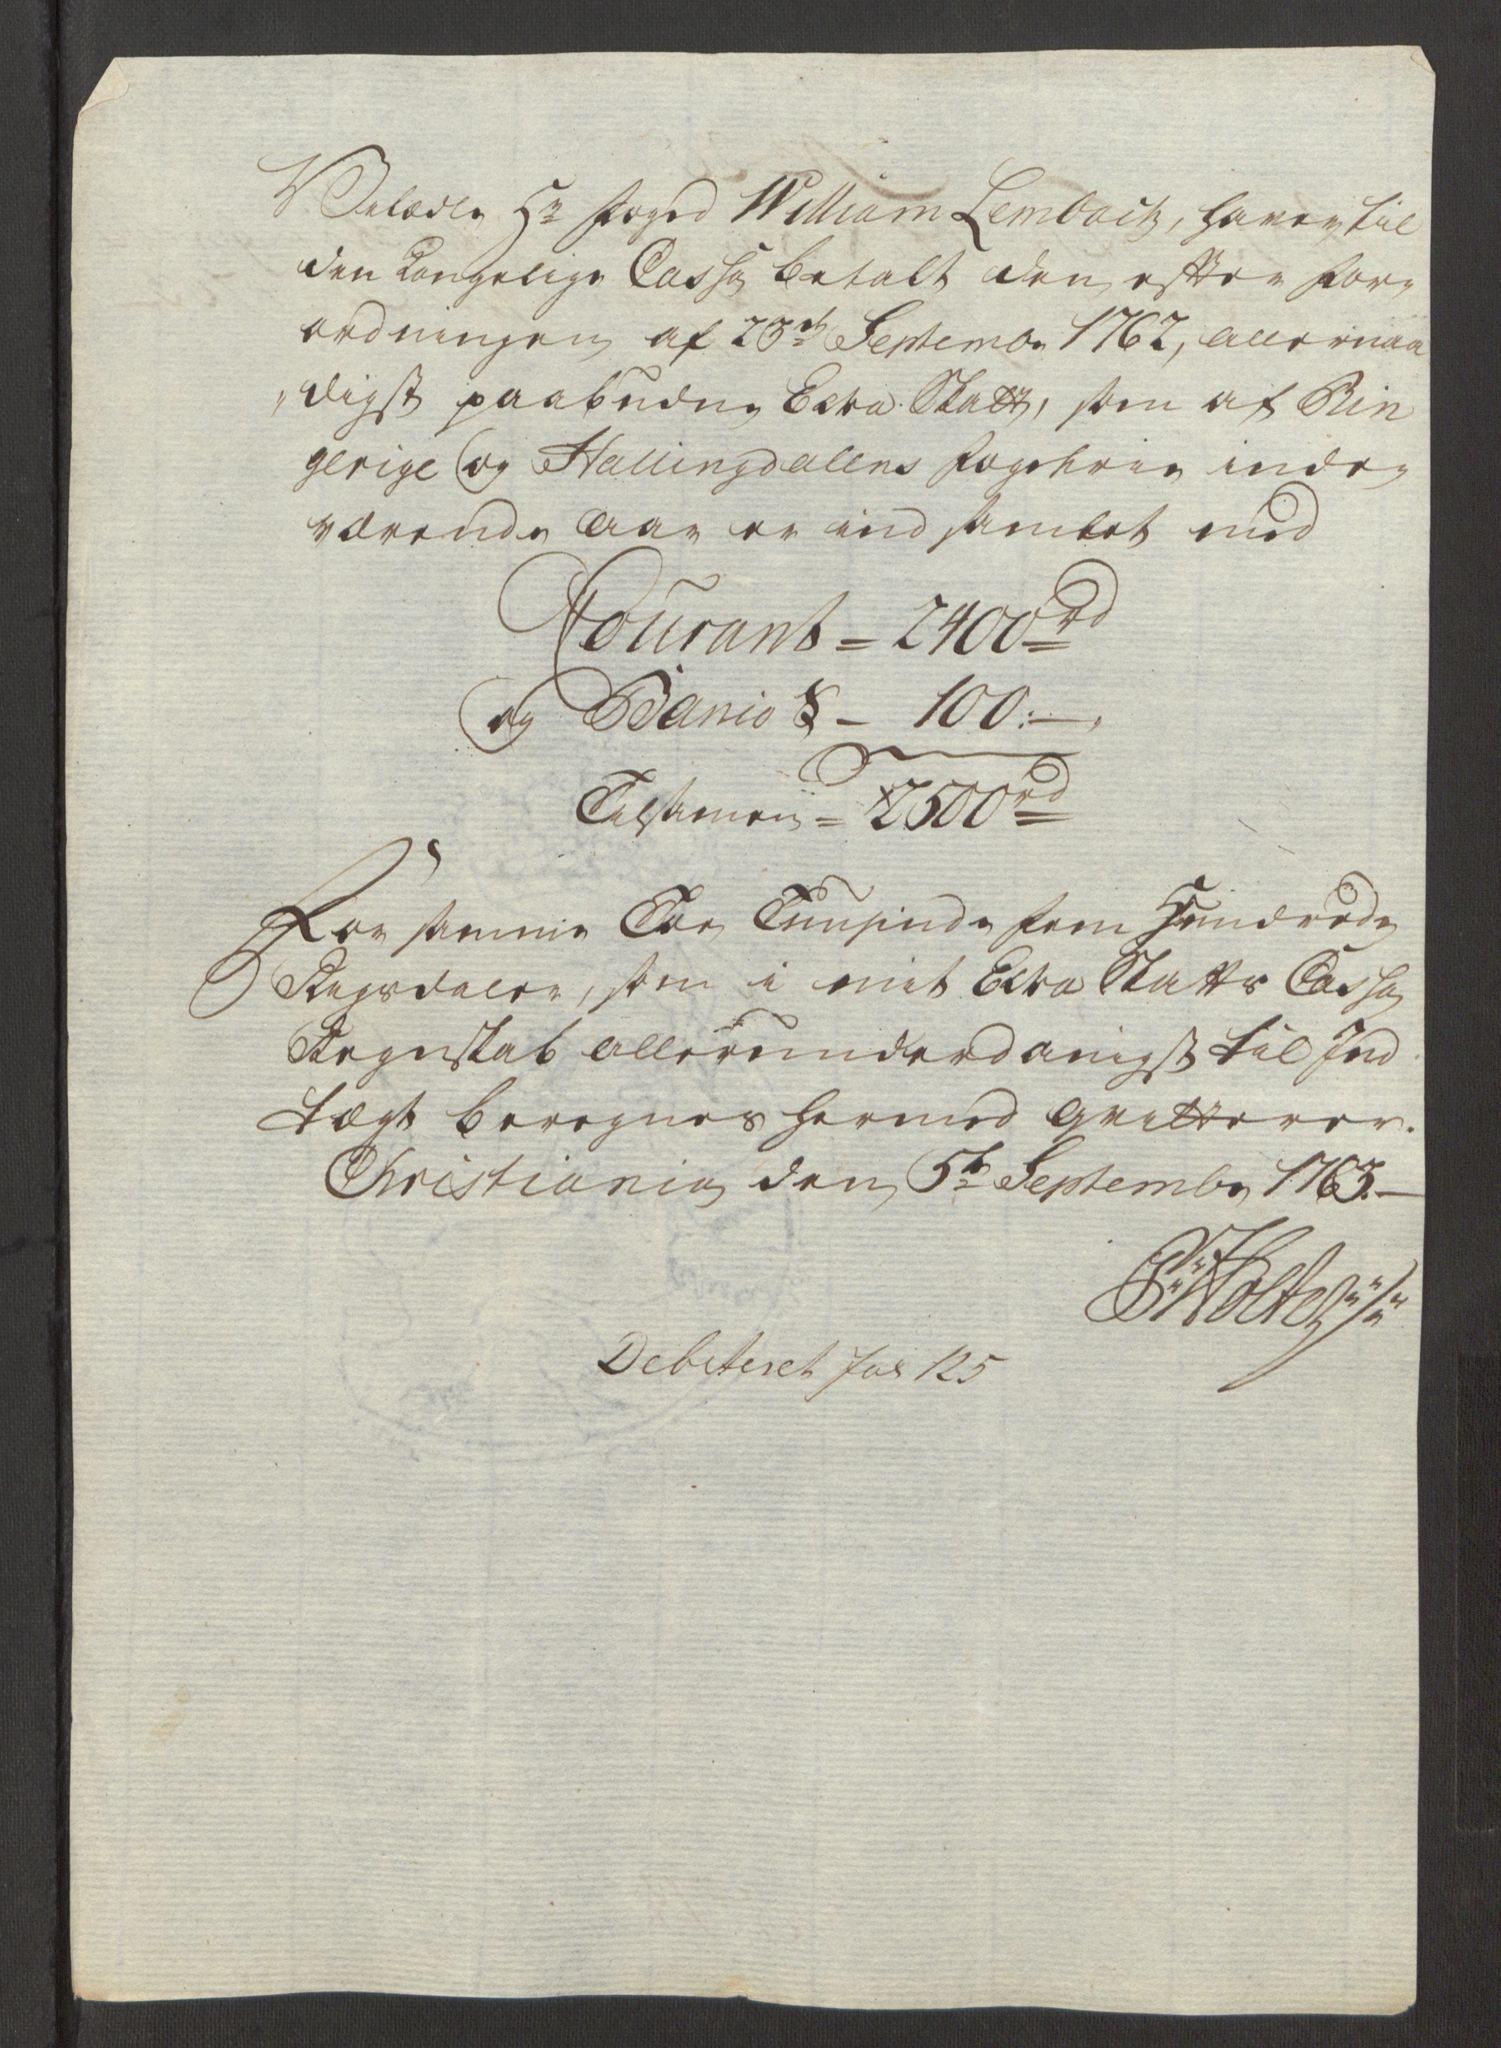 Velædle Hr Foged William Lembach, haver til
den Kongelige Cassa betalt den efter For,
ordningen af 23de Septembr 1762, allernaa
,digst paabudne Extra Skatt, som af Rin
gerige og Hallingdalens Fogderie inde,
værende Aar er indsamlet med
Courant = 2400rd
og Banco § - 100:-,
Tilsamen = 2500rd
For samme Toe Tuusinde fem Hundrede
Rigsdaler, som i mit Extra Skatts Cassa
Regnskab allerunderdanigst til Ind
tægt beregnes hermed qvitterer.
Christiania den 5te Septembr 1763.-
Holter
Debiteret for 125